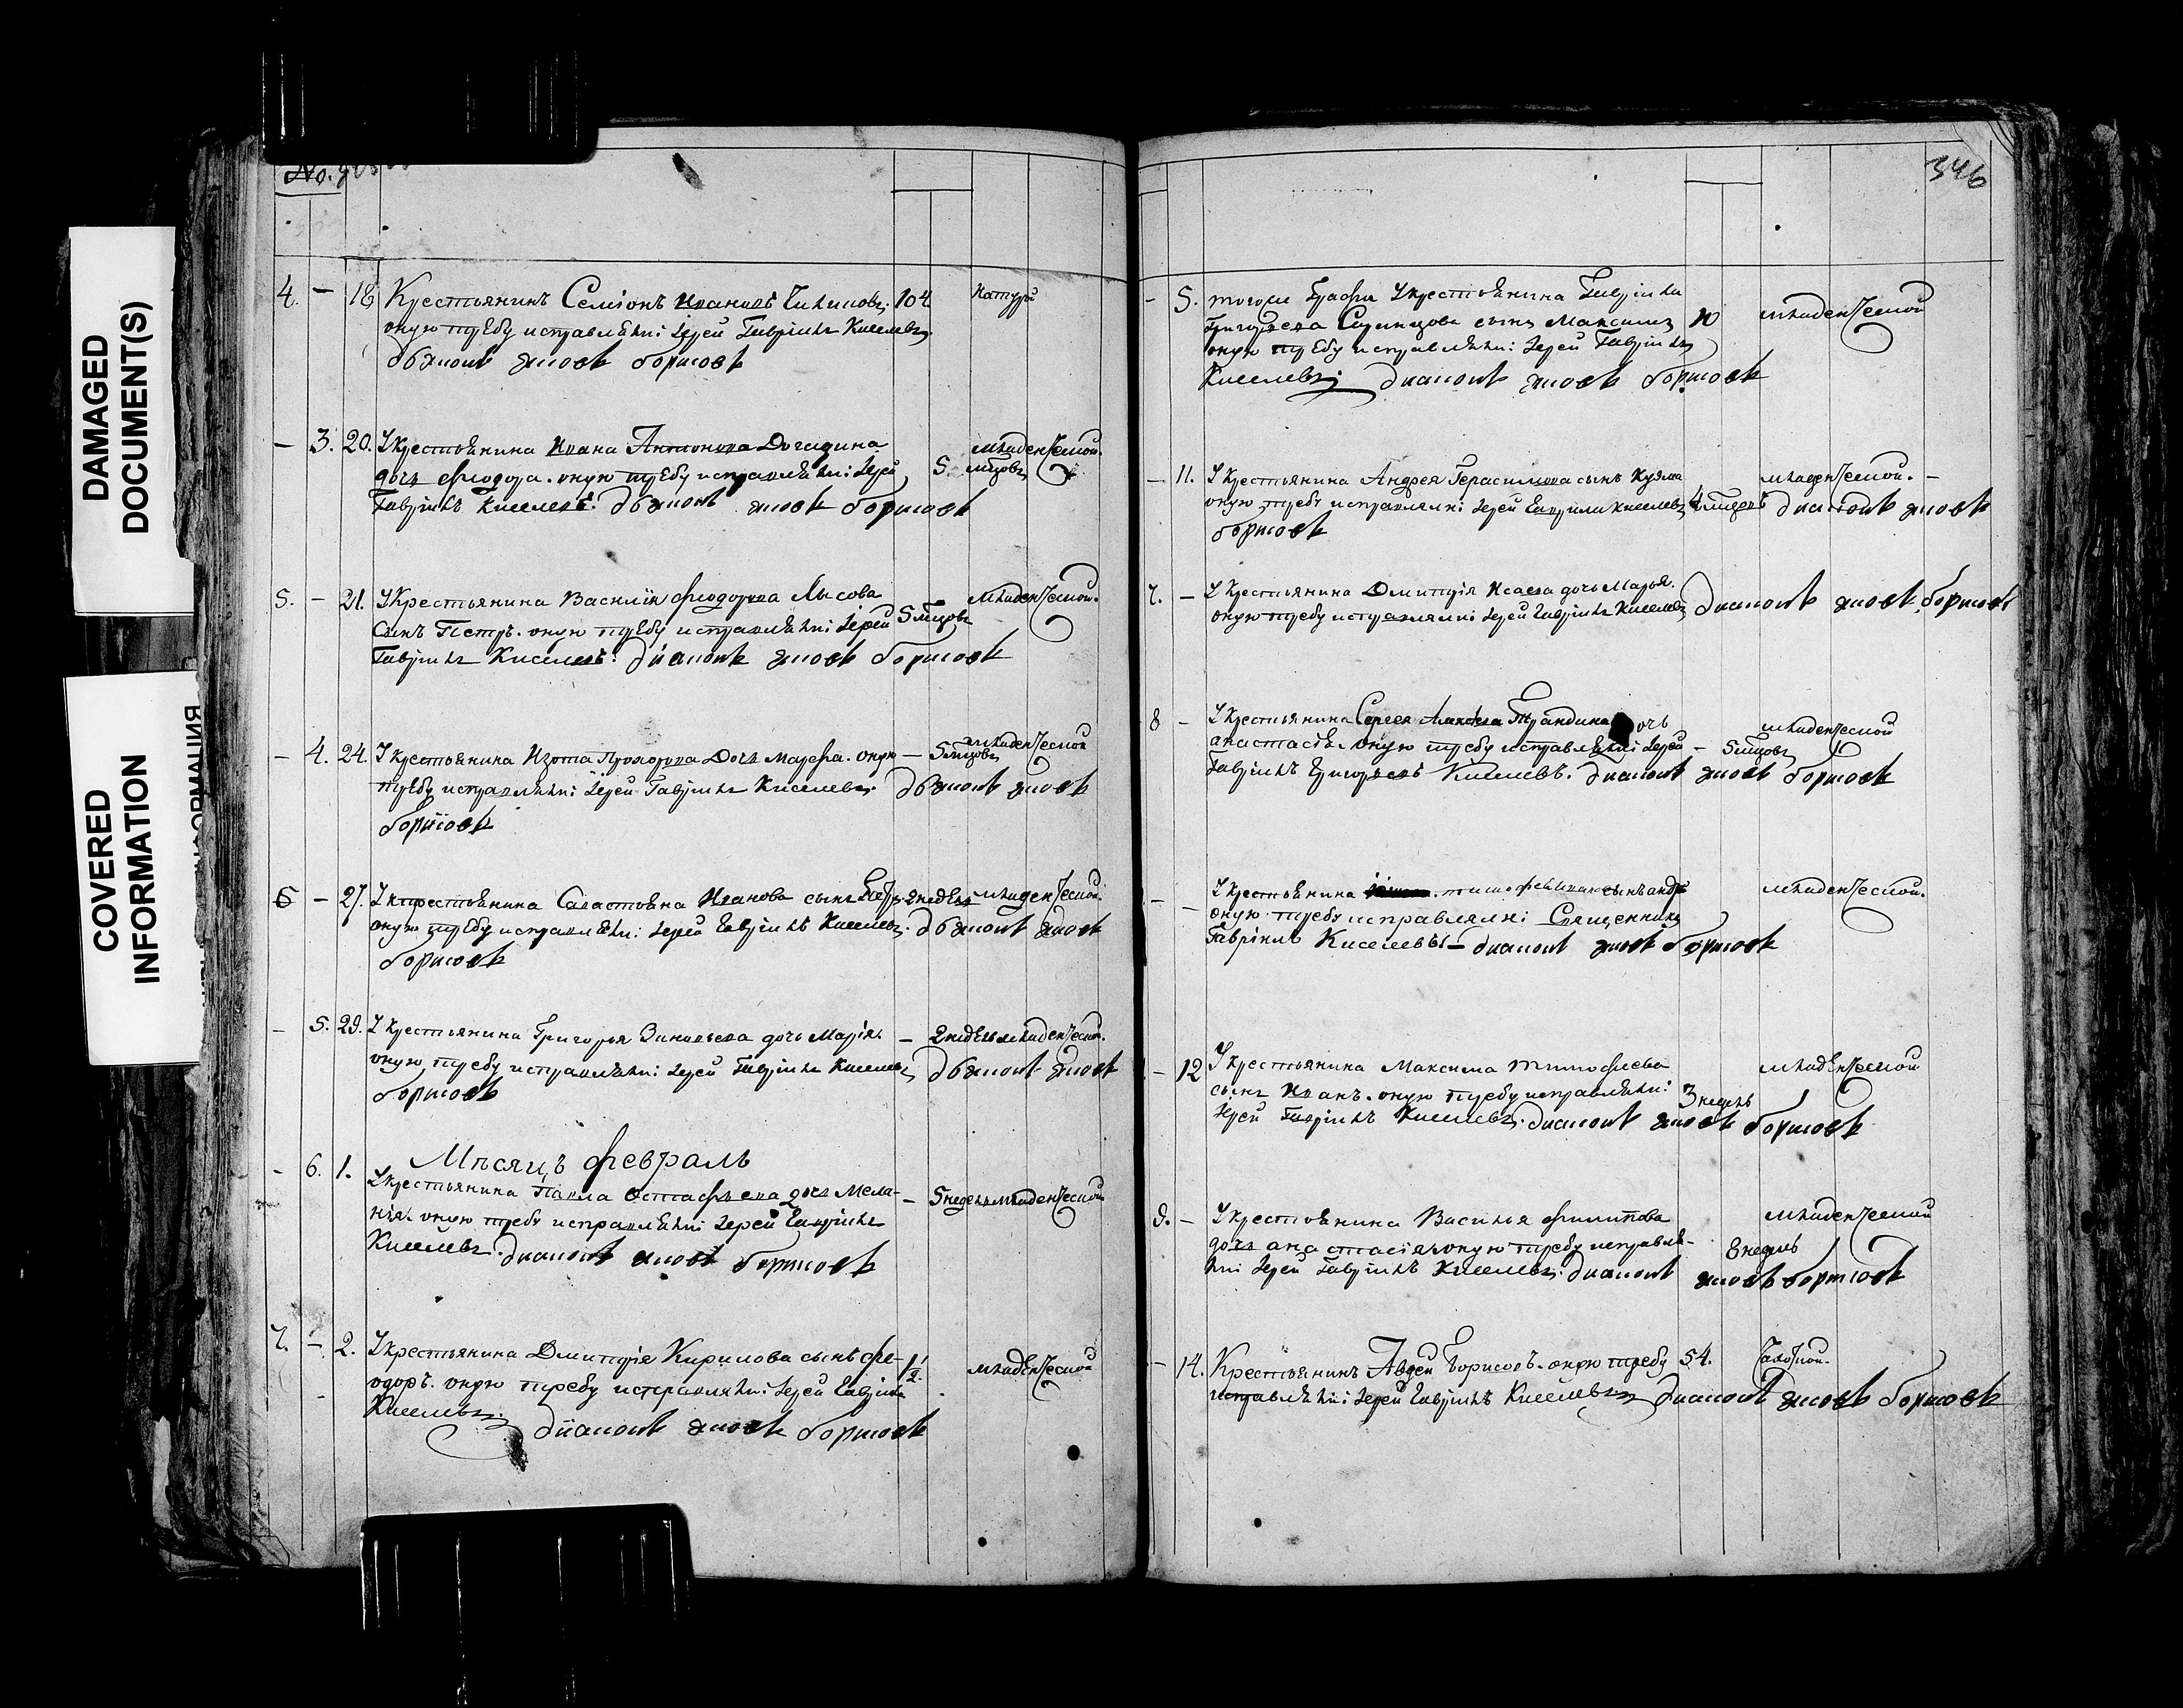 DAMAGED
DOCUMENT(S)
COVERED
INFORMATION
No.
346
4. — 18. Крестьянинъ Семіонъ Ивановъ 104
оную требу исправляли: Іерей Гавріилъ Киселевъ.
діаконъ яковъ борисовъ
— 3. 20. У крестьянина Ивана Антонова
дочь Феодора. оную требу исправляли: Іерей 5 мцовъ младенческой.
Гавріилъ Киселевъ: діаконъ яковъ борисовъ
5. — 21. У крестьянина Василия Феодорова Лысова младенческой.
сынъ Петръ. оную требу исправляли: Іерей 5 мцовъ
Гавріилъ Киселевъ: діаконъ яковъ борисовъ
— 4. 24. У крестьянина Изота Прохорова Дочь Марфа. оную — 5 мцовъ младенческой
требу исправляли: Іерей Гавріилъ Киселевъ. діаконъ яковъ
борисовъ
6 — 27. У крестьянина Савастьяна Иванова сынъ Петръ 2 недель младенческой.
оную требу исправляли: Іерей Гавріилъ Киселевъ. діаконъ яковъ
борисовъ
— 5. 29. У крестьянина Григорья Зиновьева дочь Марія — 2 недель младенческой.
оную требу исправляли: Іерей Гавріилъ Киселевъ діаконъ яковъ
борисовъ
Мѣсяцъ февраль
— 6. 1. У крестьянина Павла Остафьева дочь Мела- — 5 недель младенческой
нія. оную требу исправляли: Іерей Гавріилъ
Киселевъ. діаконъ яковъ борисовъ
7. — 2. У крестьянина Дмитрія Кирилова сынъ Фе- 1 1/2. младенческой
одоръ. оную требу исправляли: Іерей Гавріилъ
Киселевъ. діаконъ яковъ борисовъ
— 5. тогоже Графа У крестьянина Гавріила
Григорьева сынъ Максимъ 10 младенческой
оную требу исправляли: Іерей Гавріилъ
Киселевъ: діаконъ яковъ борисовъ
— 11. У крестьянина Андрея Герасимова сынъ Кузма младенческой. —
оную требу исправляли: Іерей Гаврилъ Киселевъ 4 мцовъ діаконъ яковъ
борисовъ
7. — У крестьянина Дмитрія Исаева дочь Марья.
оную требу исправляли: Іерей Гавріилъ Киселевъ діаконъ яковъ борисовъ
8 — У крестьянина Сергея дочь младенческой
анастасія. оную требу исправляли: Іерей — 5 мцовъ
Гавріилъ Григорьевъ Киселевъ. діаконъ яковъ борисовъ
— — У крестьянина тимофея сынъ младенческой.
оную требу исправляли: Священникъ
Гавріилъ Киселевъ — діаконъ яковъ борисовъ
— 12 У крестьянина Максима тимофеева младенческой
сынъ Иванъ. оную требу исправляли: 3 недель
Іерей Гавріилъ Киселевъ. діаконъ яковъ борисовъ
9. — У крестьянина Василья филипова младенческой
дочь анастасія. оную требу исправля- 8 недель
ли: Іерей Гавріилъ Киселевъ. діаконъ яковъ борисовъ
— 14. Крестьянинъ Авдей Борисовъ. оную требу 54.
исправляли: Іерей Гавріилъ Киселевъ діаконъ яковъ борисовъ